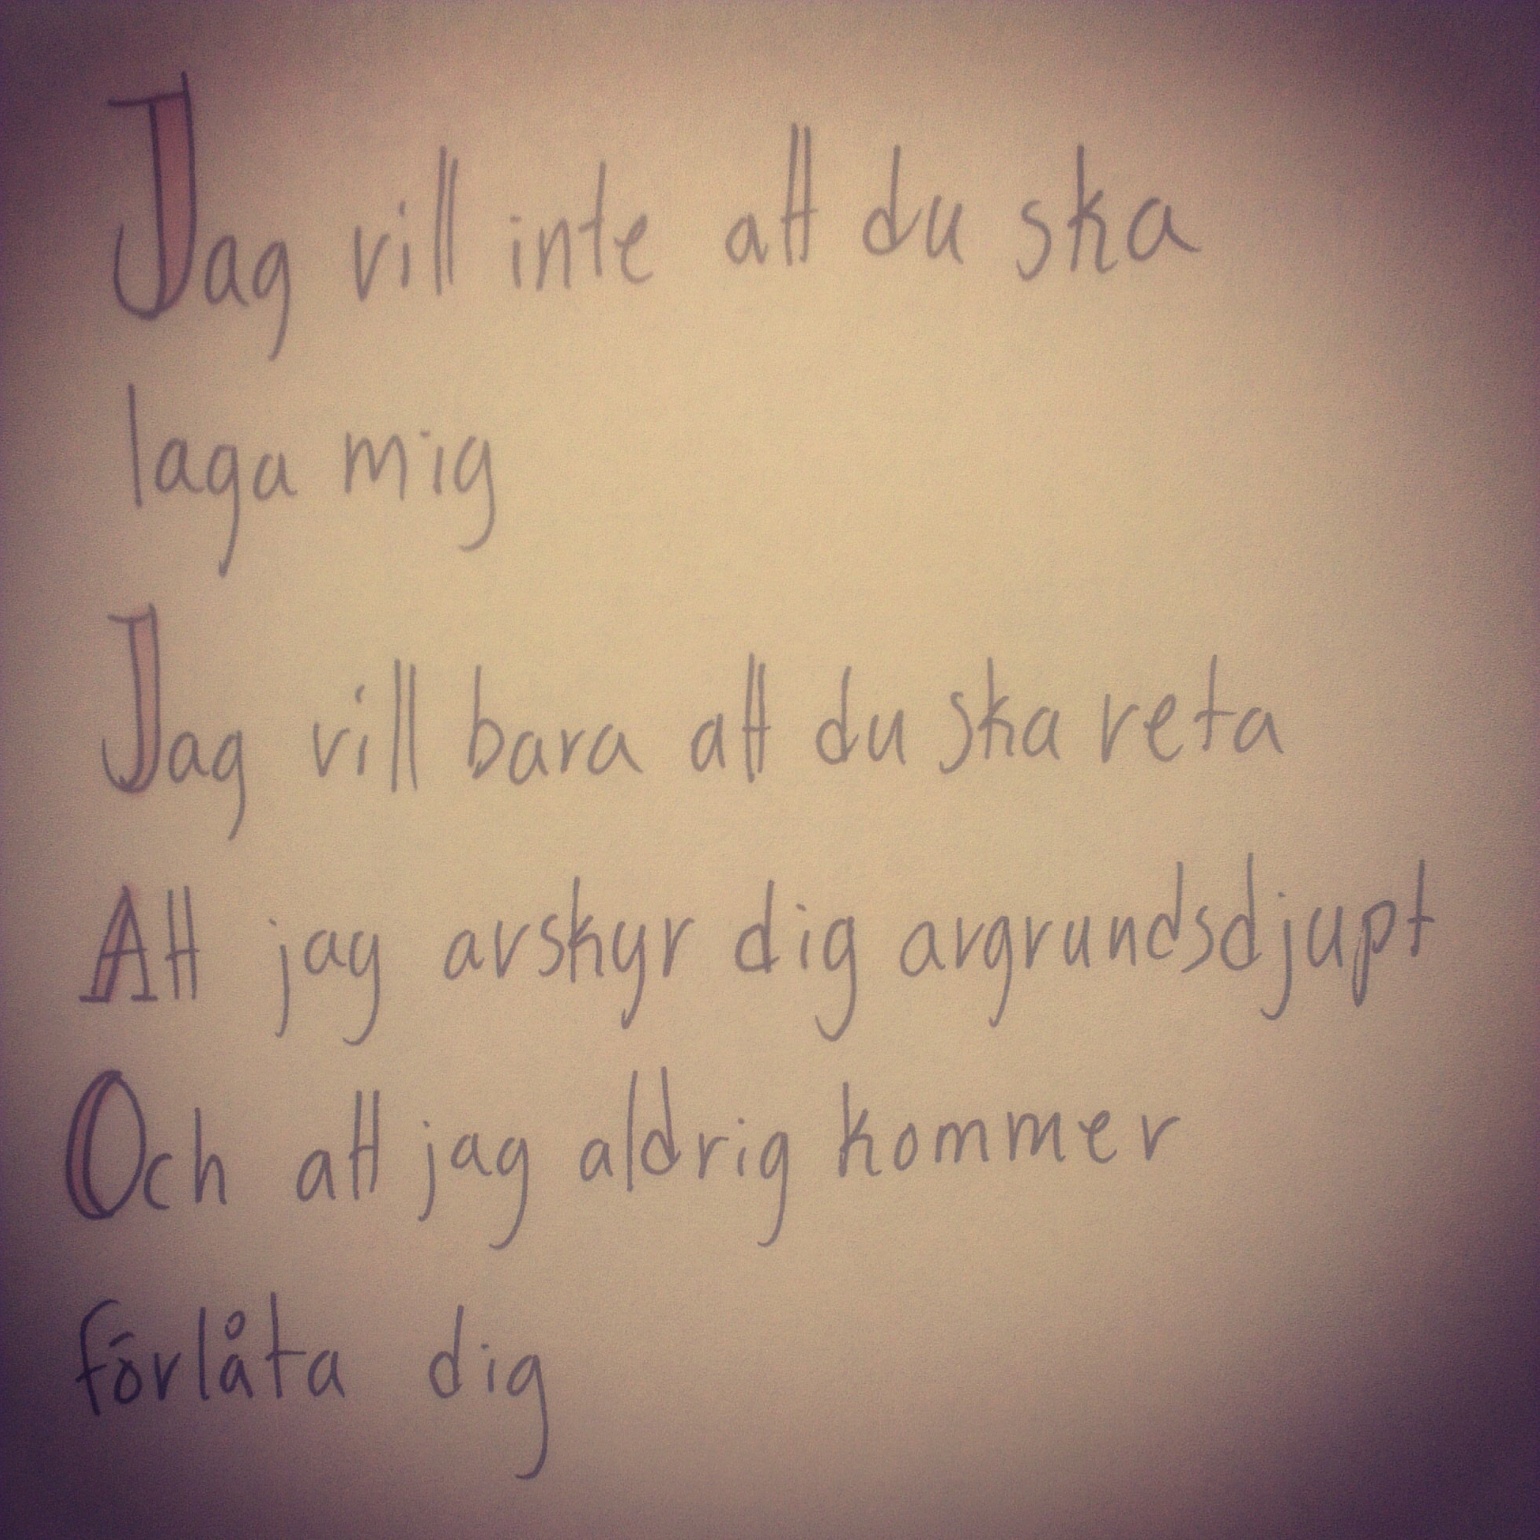 Jag vill inte att du ska
laga mig
Jag vill bara att du ska veta
Att jag avskyr dig avgrundsdjupt
Och att jag aldrig kommer
förlåta dig